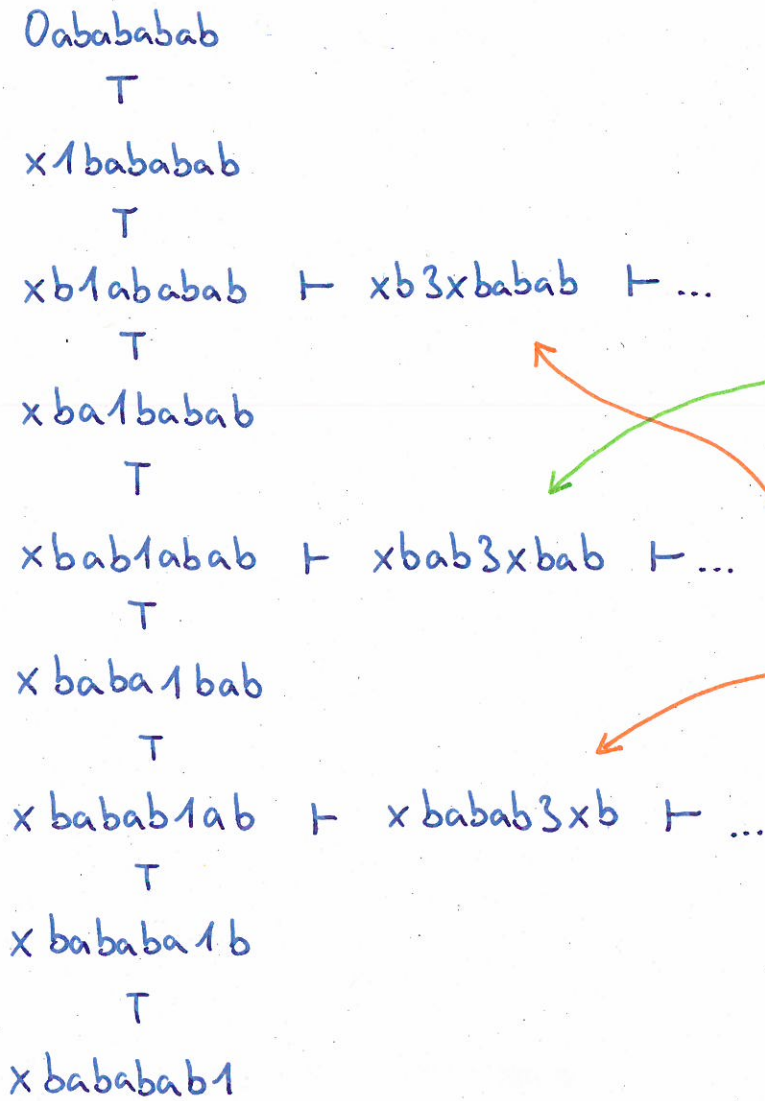 0abababab
⊤
x1bababab
⊤
xb1ababab ⊢ xb3xbabab ⊢ ...
⊤
xba1babab
⊤
xbab1abab ⊢ xbab3xbab ⊢ ...
⊤
xbaba1bab
⊤
xbabab1ab ⊢ xbabab3xb ⊢ ...
⊤
xbababa1b
⊤
xbababab1